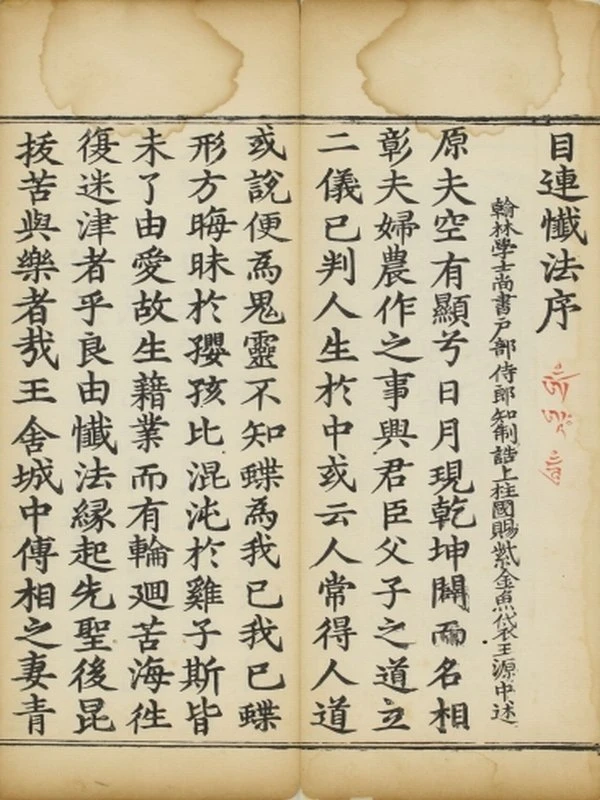 目連懺法序
翰林學士尚書戸部侍郎知制誥上柱國賜紫金魚袋王源中述
原夫空有顯兮日月現乾坤闢而名相
彰夫婦農作之事興君臣父子之道立
二儀已判人生於中或云人常得人道
或說便為鬼靈不知蝶為我已我已蝶
形方晦昧於孾孩比混沌於雞子斯皆
未了由愛故生藉業而有輪廻苦海徃
復迷津者乎良由懺法緣起先聖後昆
拔苦與樂者㢤王舍城中傅相之妻青